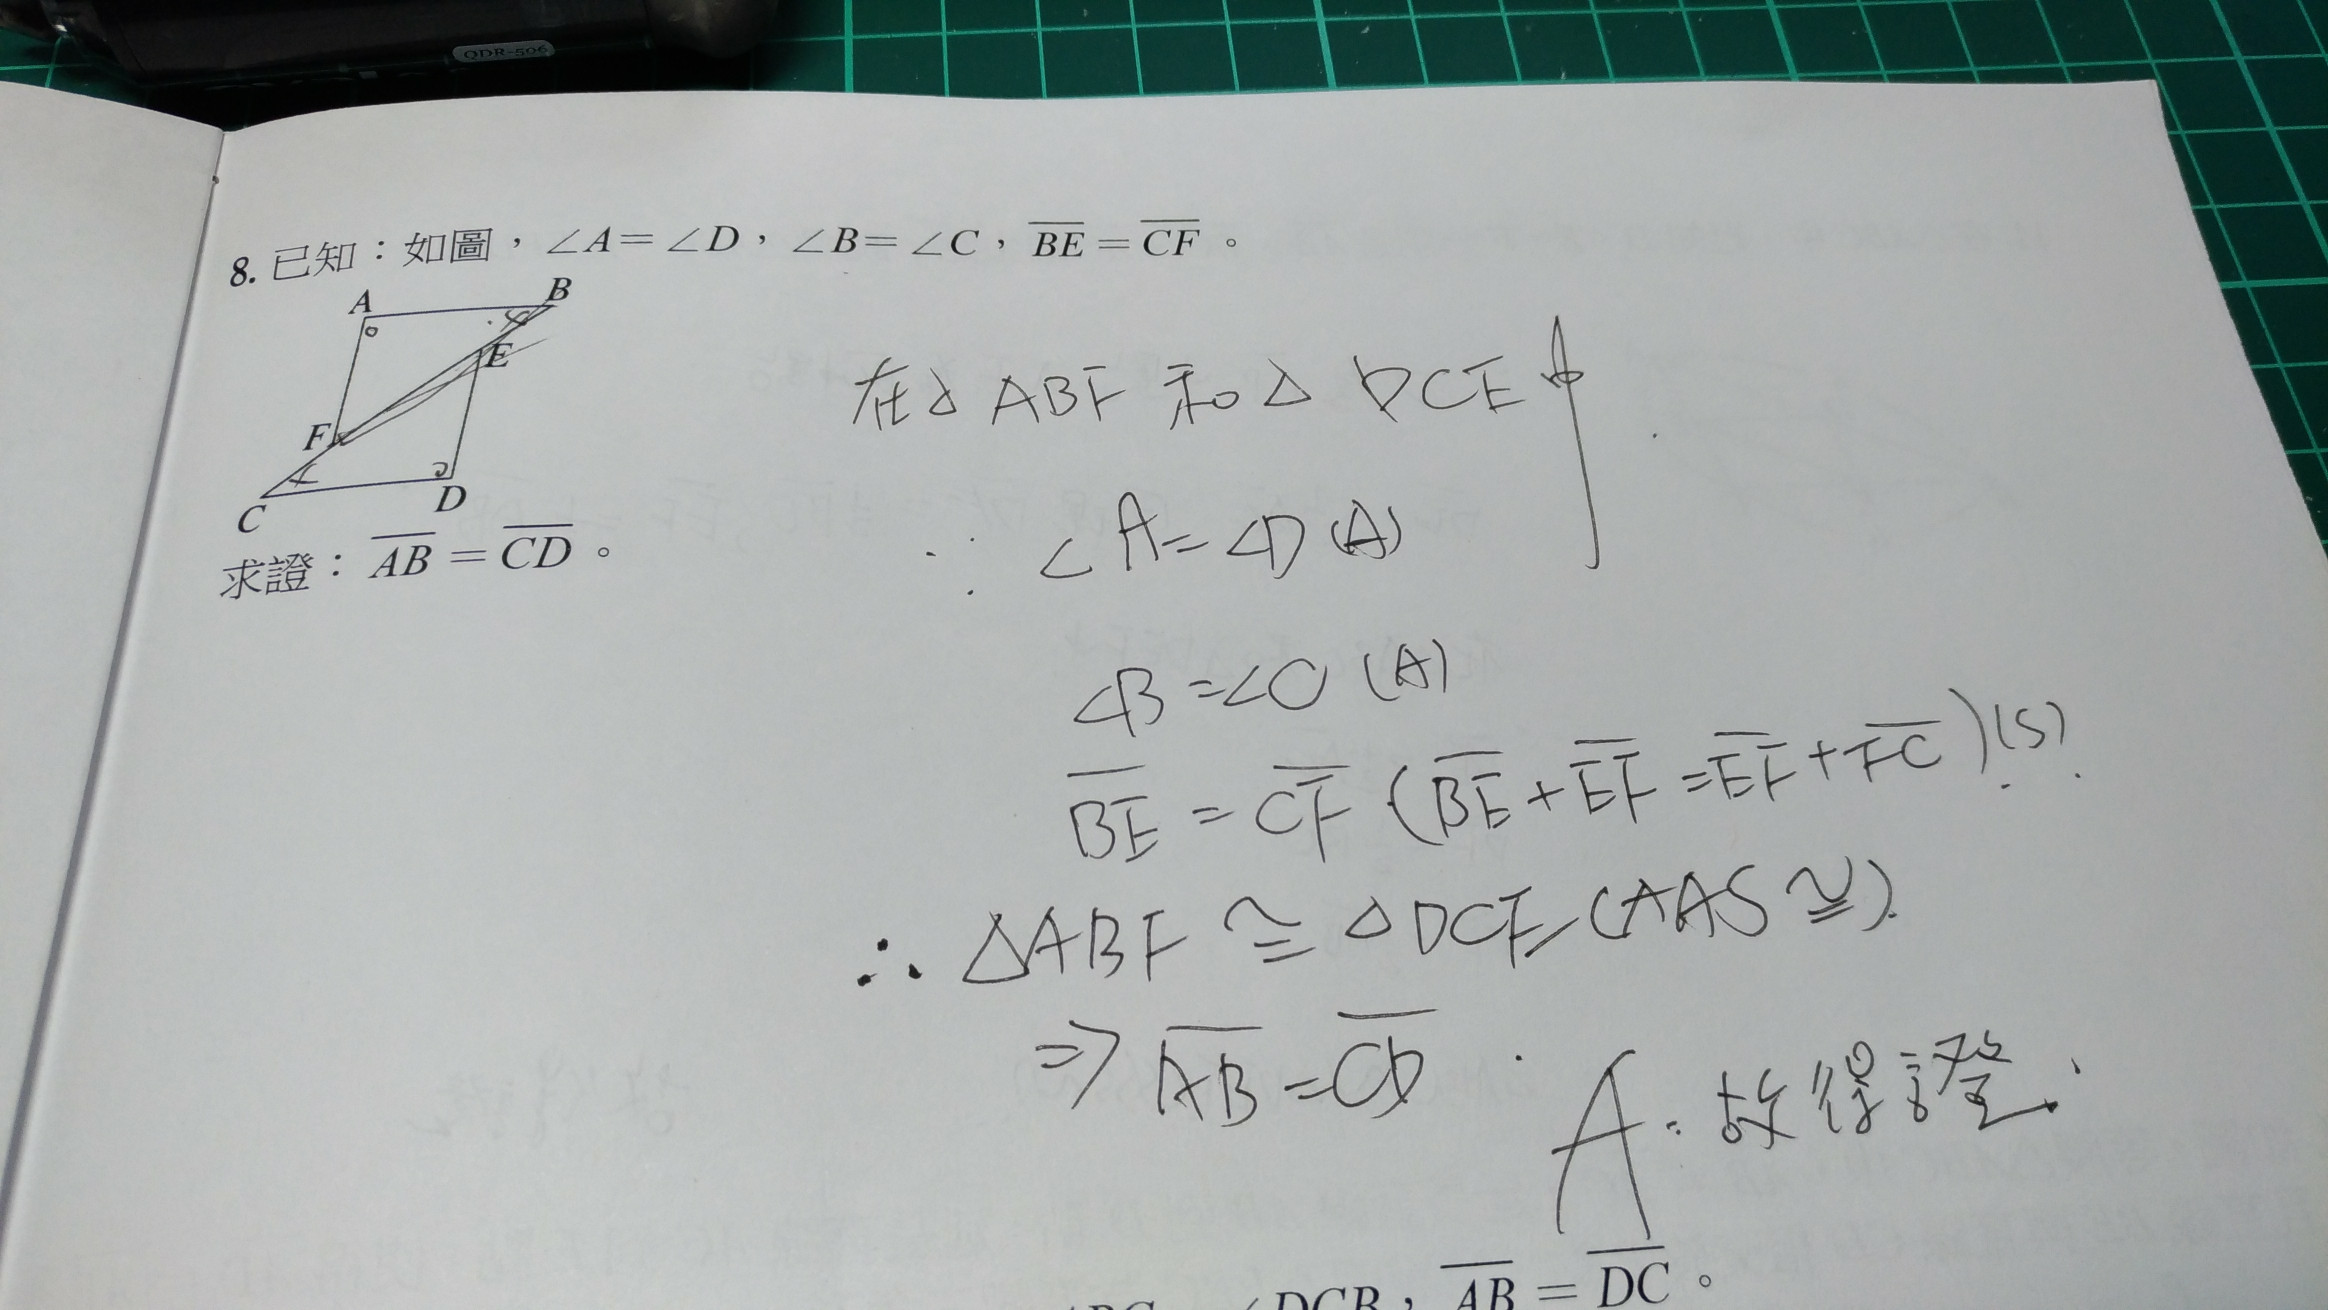 QDR-506
8. 已知：如圖，∠A=∠D，∠B=∠C，B̅E̅=C̅F̅。
A
B
E
F
C
D
求證：A̅B̅=C̅D̅。
在△ABF和△DCE中
∵ ∠A=∠D (A)
∠B=∠C (A)
B̅E̅=C̅F̅ (B̅E̅+E̅F̅=E̅F̅+F̅C̅)(S)
∴ △ABF≅△DCE (AAS≅)
⇒ A̅B̅=C̅D̅
A: 故得證.
DCB，A̅B̅=D̅C̅。